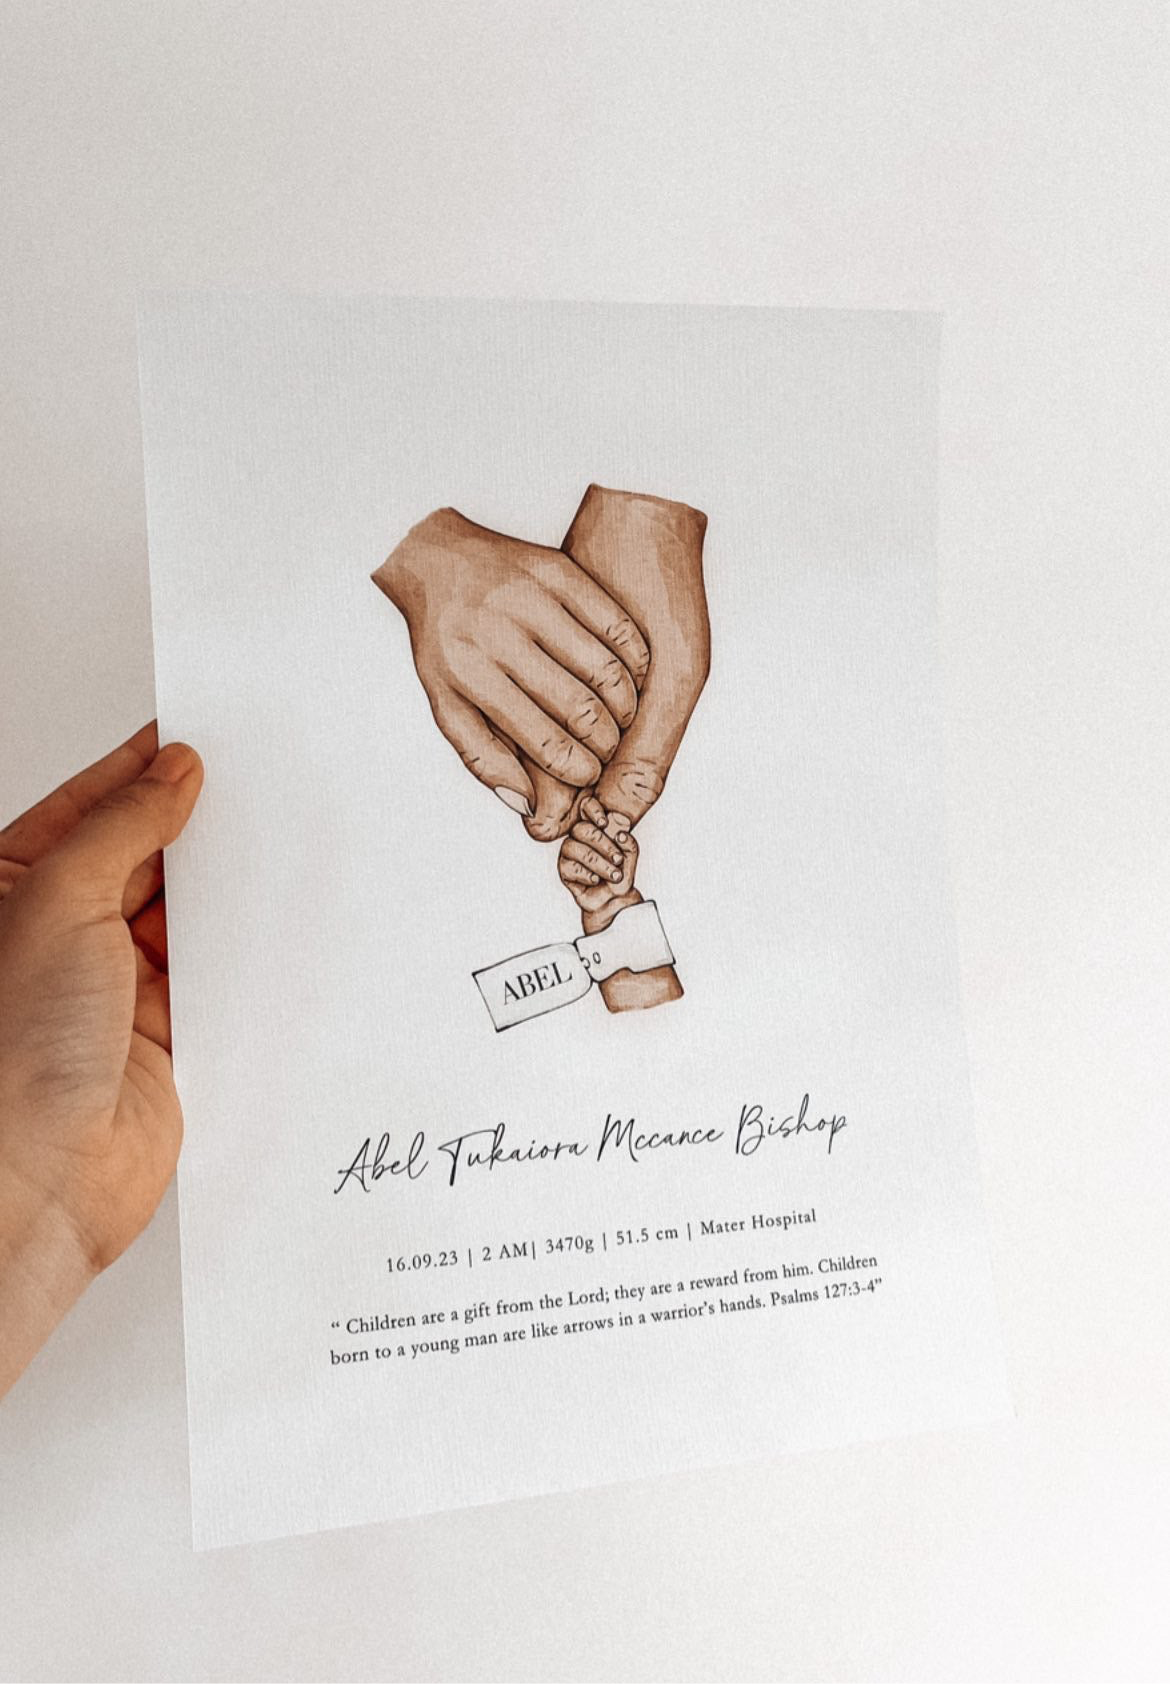 ABEL
Abel Tukaiora Mccance Bishop
16.09.23 | 2 AM| 3470g | 51.5 cm | Mater Hospital
“ Children are a gift from the Lord; they are a reward from him. Children
born to a young man are like arrows in a warrior’s hands. Psalms 127:3-4”